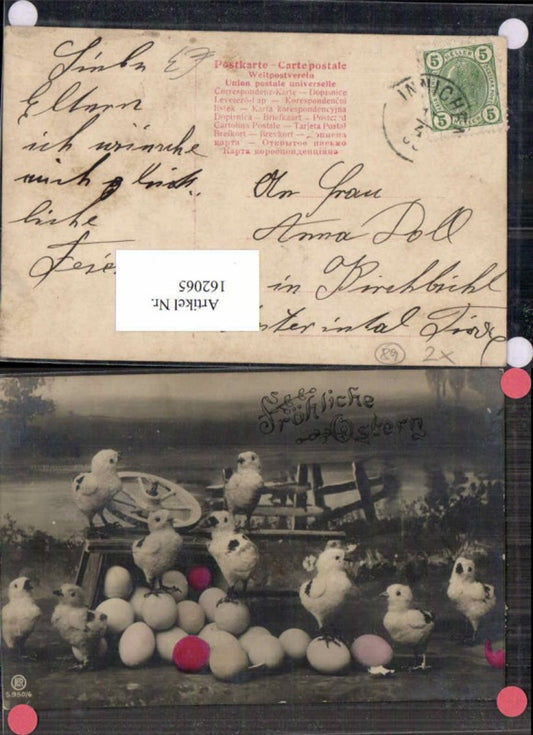 Liebe
Eltern
ich wünsche
liche
Postkarte - Carte postale
Weltpostverein
Union postale universelle
Correspondenz-Karte — Dopisnice
Levelező-Lap — Korespondenční
lístek — Karta korespondencyjna
Dopisnica — Briefkaart — Postcard
Cartolina Postale — Tarjeta Postal
Brefkort — Brevkort —
карта — Открытое письмо
Карта корреспонденційна
5 HELLER 5
5 5
INNICH
An Frau
Anna Doll
in Kirchbichl
Unterinntal Tirol
Artikel Nr.
162065
89 2x
Fröhliche
Ostern
5950/6